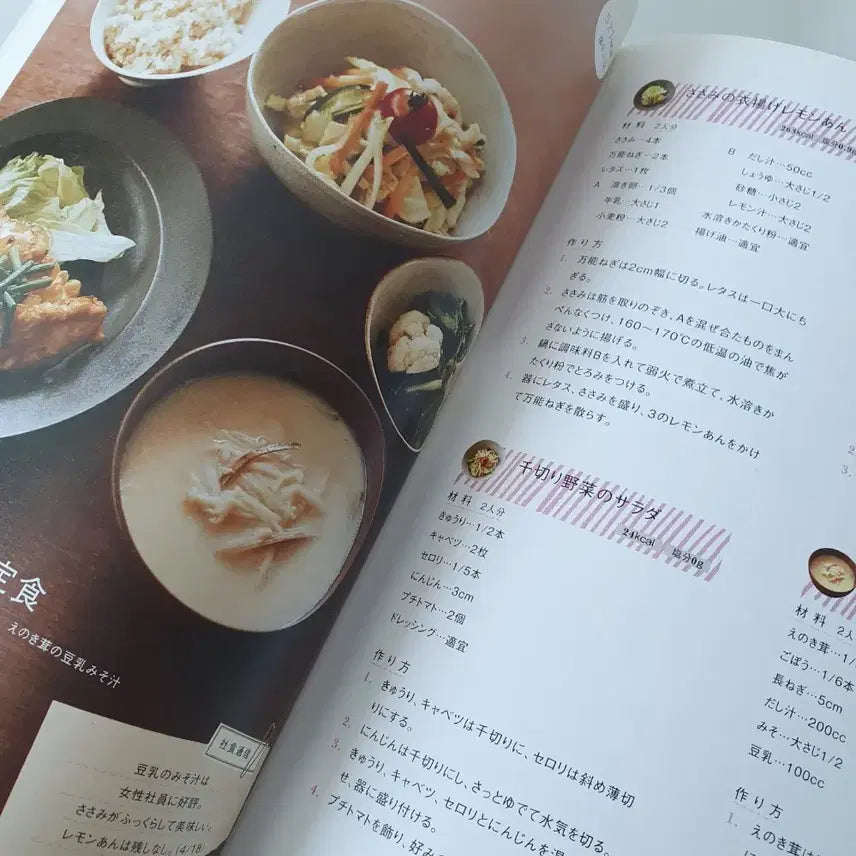 定食
えのき茸の豆乳みそ汁
社食通信
豆乳のみそ汁は
女性社員に好評。
ささみがふっくらして美味しい。
レモンあんは残しなし。(4/18)
ささみの衣揚げレモンあん
263kcal 塩分0.9g
材料 2人分
ささみ…4本
万能ねぎ…2本
レタス…1枚
A 溶き卵…1/3個
牛乳…大さじ1
小麦粉…大さじ2
B だし汁…50cc
しょうゆ…大さじ1/2
砂糖…小さじ2
レモン汁…大さじ2
水溶きかたくり粉…適宜
揚げ油…適宜
作り方
1. 万能ねぎは2cm幅に切る。レタスは一口大にち
ぎる。
2. ささみは筋を取りのぞき、Aを混ぜ合たものをまん
べんなくつけ、160〜170℃の低温の油で焦が
さないように揚げる。
3. 鍋に調味料Bを入れて弱火で煮立て、水溶きか
たくり粉でとろみをつける。
4. 器にレタス、ささみを盛り、3のレモンあんをかけ
て万能ねぎを散らす。
千切り野菜のサラダ
24kcal 塩分0g
材料 2人分
きゅうり…1/2本
キャベツ…2枚
セロリ…1/5本
にんじん…3cm
プチトマト…2個
ドレッシング…適宜
作り方
1. きゅうり、キャベツは千切りに、セロリは斜め薄切
りにする。
2. にんじんは千切りにし、さっとゆでて水気を切る。
3. きゅうり、キャベツ、セロリとにんじんを混
ぜ、器に盛り付ける。
4. プチトマトを飾り、好み
材料 2人
えのき茸…1/
ごぼう…1/6本
長ねぎ…5cm
だし汁…200cc
みそ…大さじ1/2
豆乳…100cc
作り方
1. えのき茸は
2.
3.